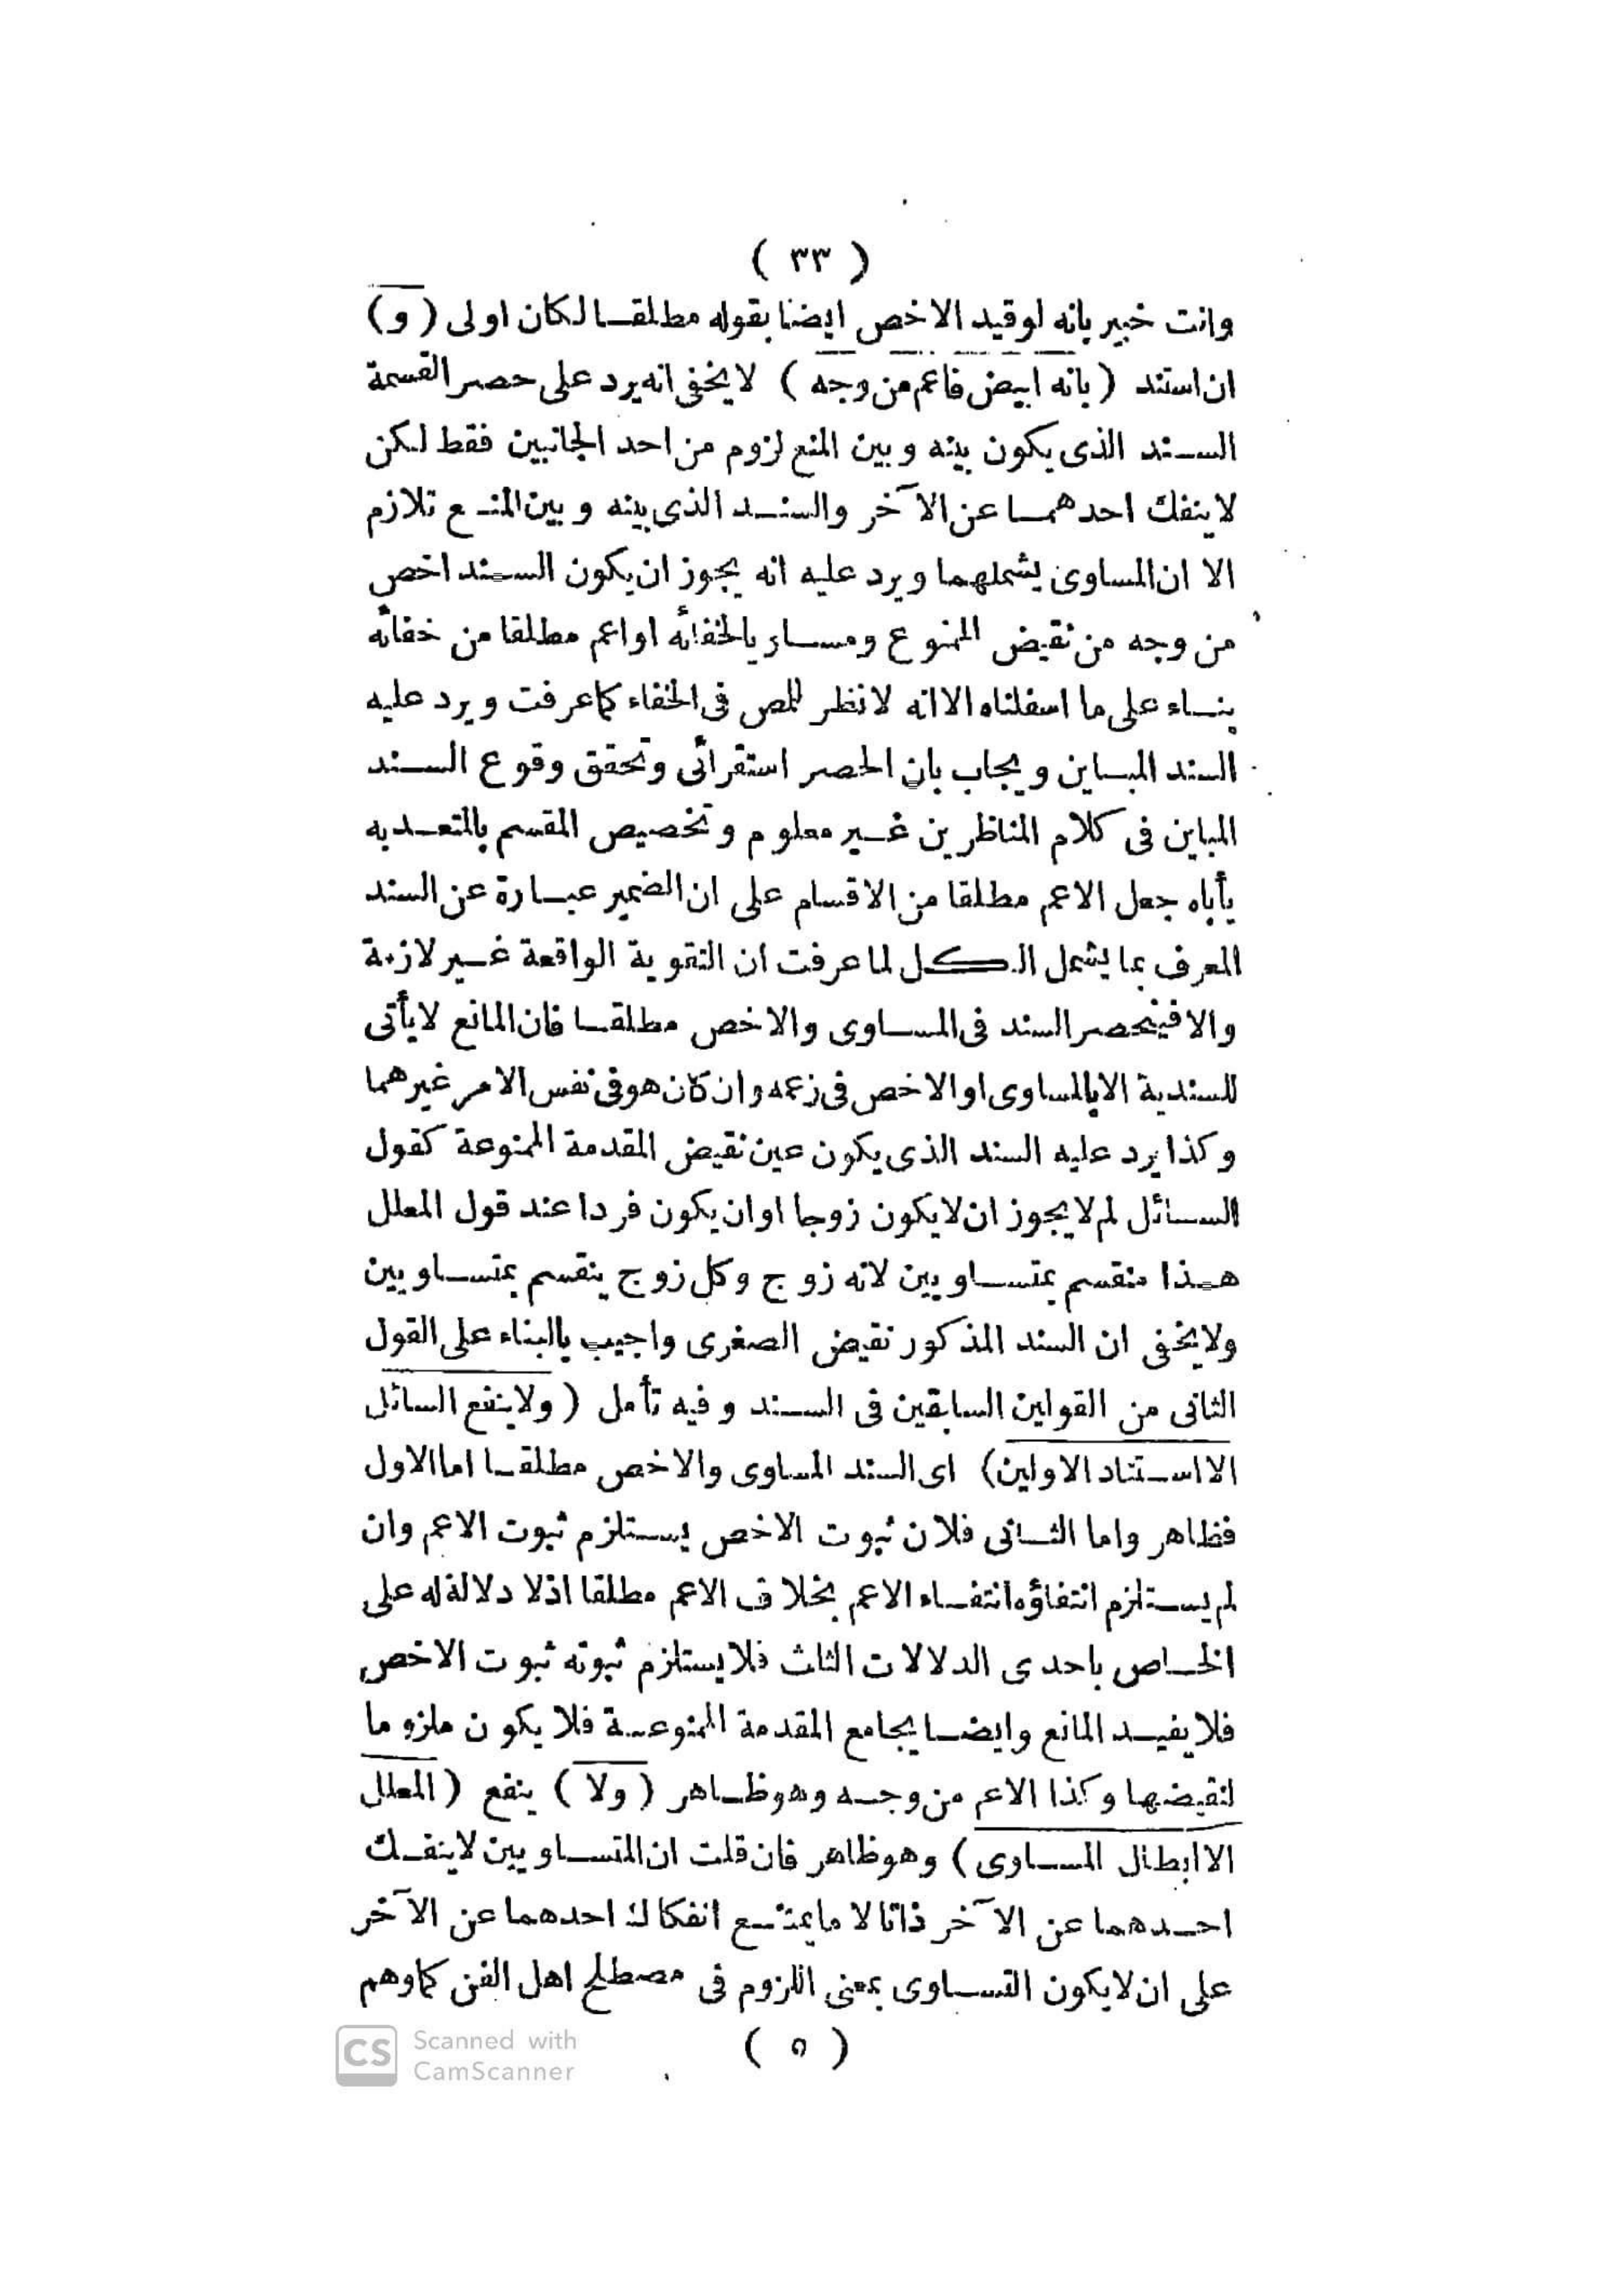 ( ٣٣ )
وانت خبير بانه لوقيد الاخص ايضا بقوله مطلقا لكان اولى ( و )
ان استند ( بانه ابيض فاعم من وجه ) لا يخفى انه يرد على حصر القسمة
السند الذى يكون بينه و بين المنع لزوم من احد الجانبين فقط لكن
لا ينفك احدهما عن الآخر والسند الذى بينه و بين المنع تلازم
الا ان المساوى يشملهما و يرد عليه انه يجوز ان يكون السند اخص
من وجه من نقيض الممنوع ومساو يا لخفائه او اعم مطلقا من خفائه
بناء على ما اسفلناه الا انه لا نظر للمص فى الخفاء كما عرفت و يرد عليه
السند المباين و يجاب بان الحصر استقرائى وتحقق وقوع السند
المباين فى كلام المناظرين غير معلوم و تخصيص المقسم بالتعديه
يأباه جعل الاعم مطلقا من الاقسام على ان الضمير عبارة عن السند
المعرف بما يشمل الكل لما عرفت ان التقوية الواقعة غير لازمة
والا فينحصر السند فى المساوى والاخص مطلقا فان المانع لا يأتى
للسندية الا بالمساوى او الاخص فى زعمه وان كان هو فى نفس الامر غيرهما
و كذا يرد عليه السند الذى يكون عين نقيض المقدمة الممنوعة كقول
السائل لم لا يجوز ان لا يكون زوجا او ان يكون فردا عند قول المعلل
هذا منقسم بمتساويين لانه زوج وكل زوج ينقسم بمتساويين
ولا يخفى ان السند المذكور نقيض الصغرى واجيب بالبناء على القول
الثانى من القولين السابقين فى السند و فيه تأمل ( ولا ينفع السائل
الا استناد الاولين ) اى السند المساوى والاخص مطلقا اما الاول
فظاهر واما الثانى فلان ثبوت الاخص يستلزم ثبوت الاعم وان
لم يستلزم انتفاؤه انتفاء الاعم بخلاف الاعم مطلقا اذ لا دلالة له على
الخاص باحدى الدلالات الثلث فلا يستلزم ثبوته ثبوت الاخص
فلا يفيد المانع وايضا يجامع المقدمة الممنوعة فلا يكون ملزوما
لنقيضها و كذا الاعم من وجه وهو ظاهر ( ولا ) ينفع ( المعلل
الا ابطال المساوى ) وهو ظاهر فان قلت ان المتساويين لا ينفك
احدهما عن الآخر ذاتا لا ما يمتنع انفكاك احدهما عن الآخر
على ان لا يكون التساوى بمعنى اللزوم فى مصطلح اهل الفن كما وهم
( ٥ )
CS Scanned with
CamScanner